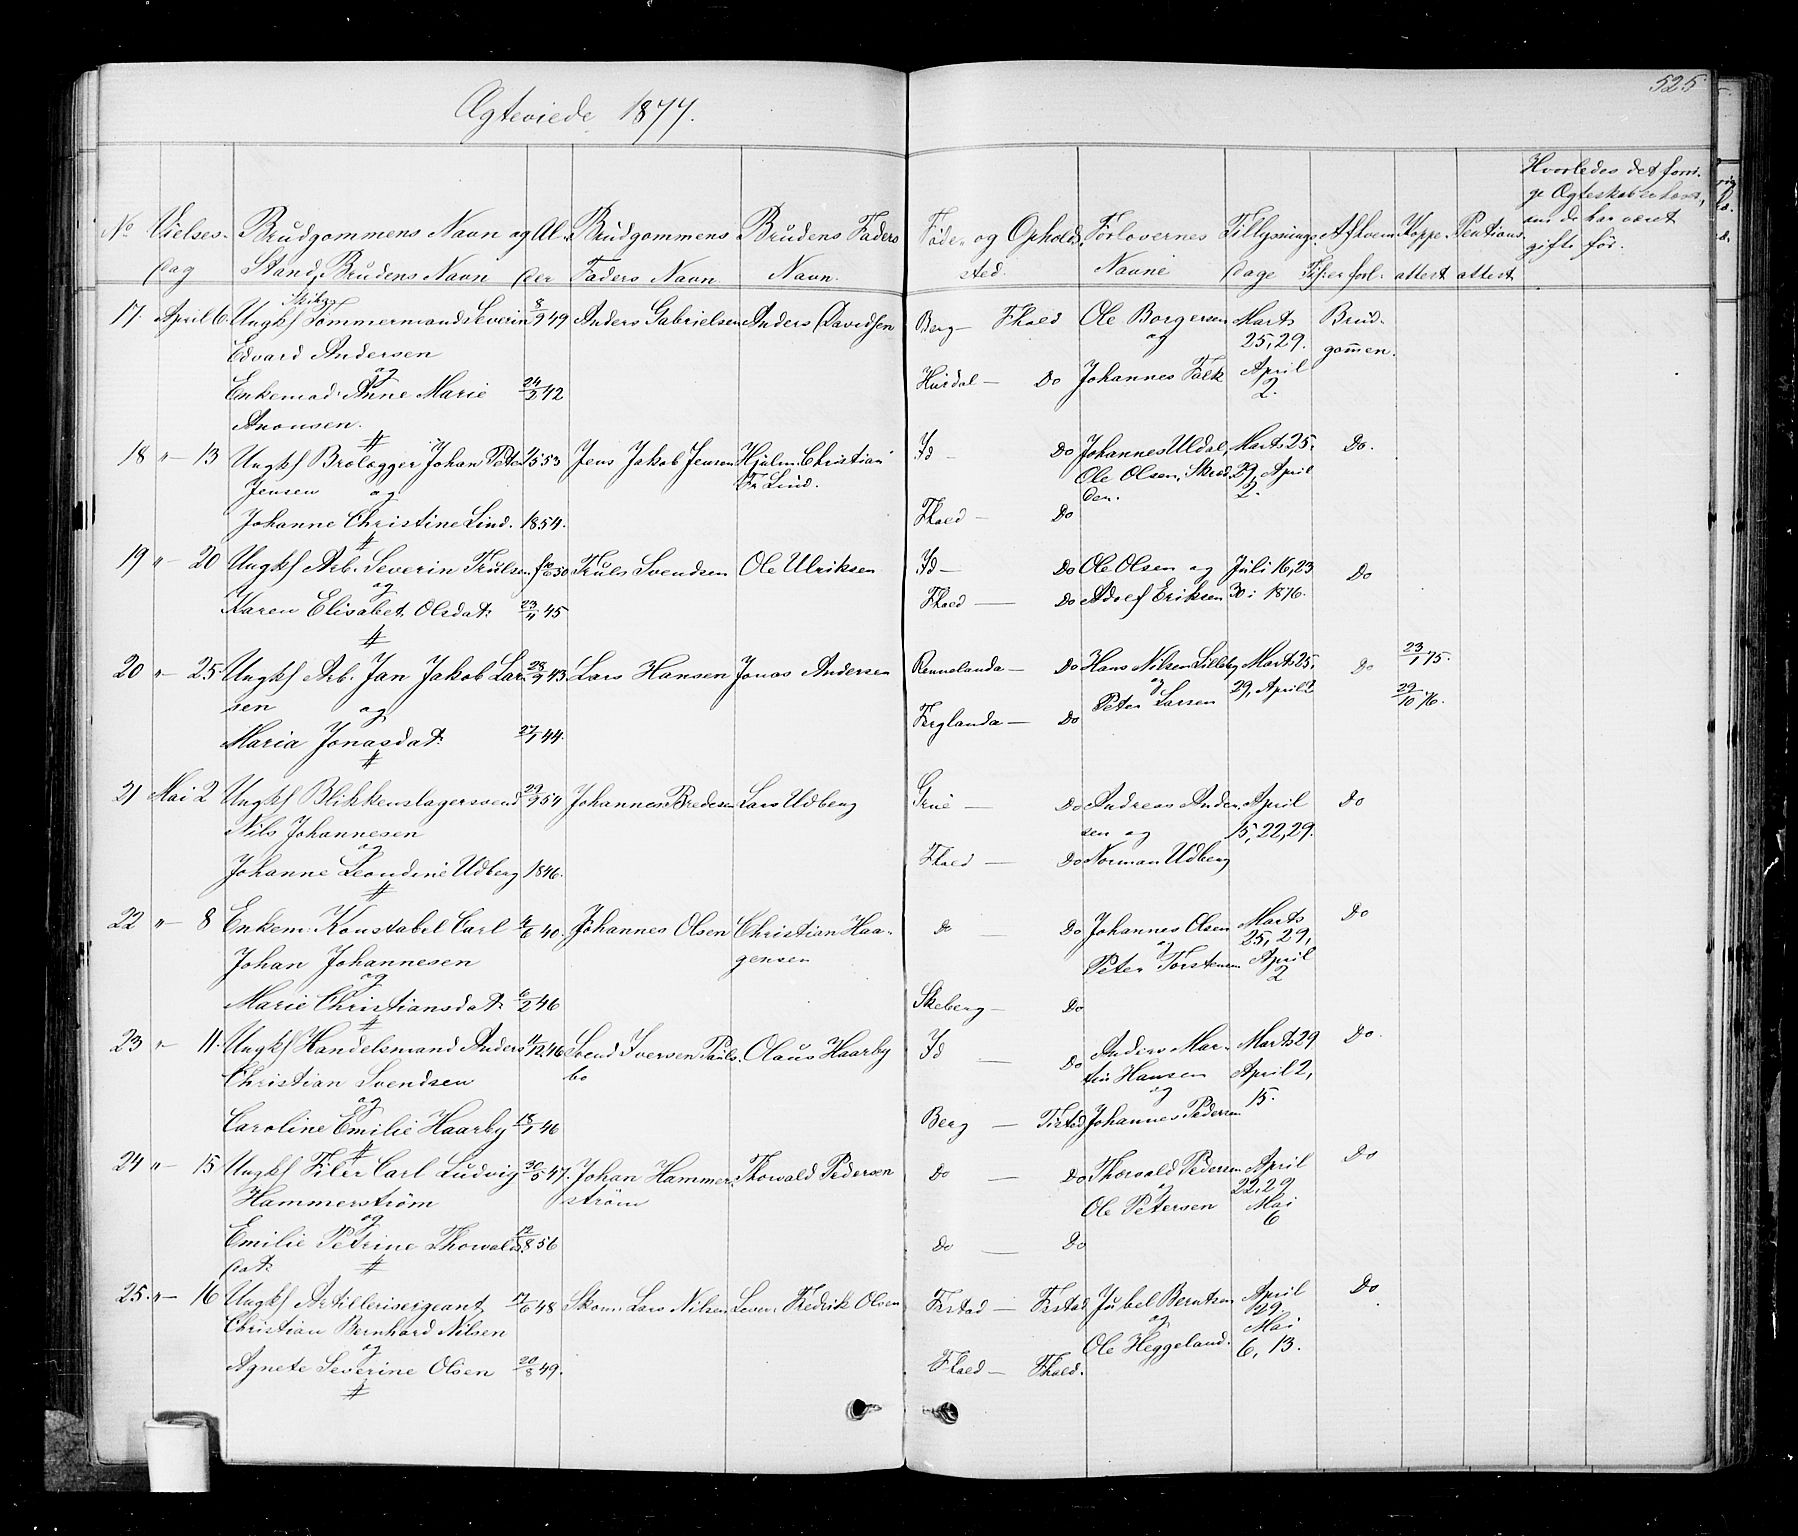 Ægteviede 1877.
525
No
Vielses-
dag
Brudgommens Navn og
Stand, Brudens Navn
Al-
der
Brudgommens
Faders Navn
Brudens Faders
Navn.
Føde- og Opholds-
sted.
Forlovernes
Navne
Tillysnings-
dage
Af hvem
Koppe-
attest
attest
Hvorledes det forri-
ge Ægteskab er hævet,
om de har været
gifte før.
17. April 6. Ungkf Tømmermand Severin 8/9 49 Anders Gabrielsen Anders Davidsen Berg — Fhald Ole Borgersen Marts Brud-
Edvard Andersen og 25, 29. gommen.
og
Enkemad. Anne Marie 24/3 42 Hurdal — Do Johannes Falk April
Aronsen. 2.
18 " — 13 Ungkf Brolægger Johan Peter 53 Jens Jakob Jensen Hjalm. Christian Id — Do Johannes Uldal, Marts 25. Do.
Jensen og Fr. Lind. Ole Olsen, Skræd- 29, April
der. 2.
Johanne Christine Lind. 1854. Fhald — Do
19 " — 20 Ungkf Arb. Severin Trulsen 50 Truls Svendsen Ole Ulriksen Id — Do Ole Olsen og Juli 16, 23 Do
og
Karen Elisabet Olsdat: 45 Fhald — Do Adolf Eriksen 30 i 1876.
20 " — 25 Ungkf Arb. Jan Jakob Lar- 43 Lars Hansen Jonas Andersen Rennelanda — Do Hans Nilsen Marts 25, Do 23/1 75.
sen og og 29, April 2 29/10 76.
Peter Larsen
Maria Jonasdat: 27/1 44. Ferglanda — Do
21 Mai 2 Ungkf Blikkenslagersvend 54 Johannes Bredesen Lars Udberg Grue — Do Andreas Ander- April Do
Nils Johannesen sen og 15, 22, 29.
og
Johanne Leondine Udberg 1846. Fhald — Do Norman Udberg
22 " — 8 Enkem: Konstabel Carl 40. Johannes Olsen Christian Haa- do — Do Johannes Olsen Marts Do
Johan Johannesen gensen og 25, 29,
og Peter Torstensen April
2
Marie Christiansdat: 6/2 46 Skeberg — Do
23 " — 11. Ungkf Handelsmand Anders 11/12 46 Svend Iversen Pauls- Olaus Haarby Id — Do Anders Mar- Marts 29 Do.
Christian Svendsen bo tin Hansen April 2,
og og 15.
Caroline Emilie Haarby 18/1 46 Berg — Tistad Johannes Pedersen
24 " — 15 Ungkf Filer Carl Ludvig 30/5 47. Johan Hammer- Thorvald Pedersen Do — Do Thorvald Pedersen April Do
Hammerstrøm strøm og 22, 29
og Ole Petersen Mai
6
Emilie Petrine Thorvalds- 12/8 56 Do — Do
dat:
25. " — 16 Ungkf Artillerisergeant 17/6 48 Skom: Lars Nilsen Fredrik Olsen Frstad — Frstad Jubel Berntsen April Do
Christian Bernhard Nilsen og 29
og Mai
Ole Heggeland. 6, 13.
Agnete Severine Olsen 20/8 49. Fhald — Fhald.